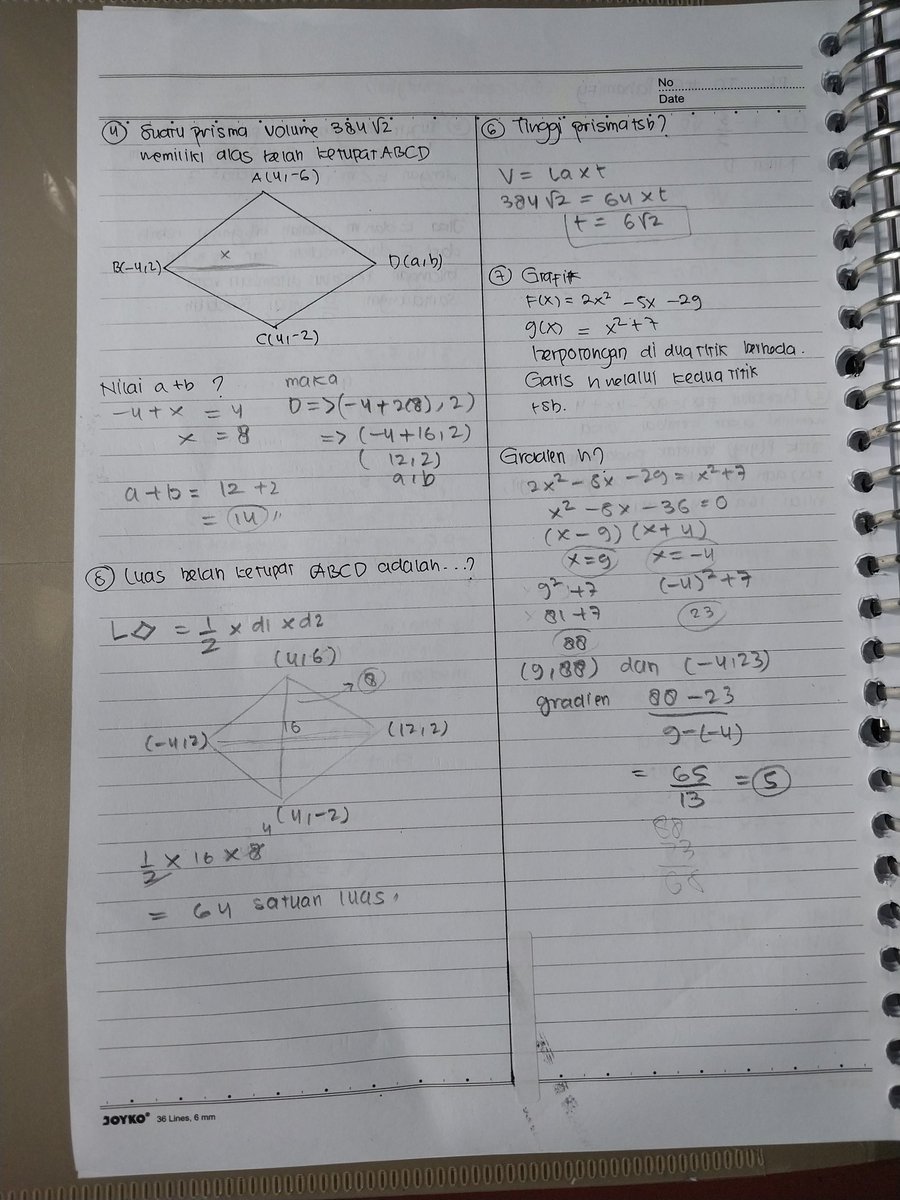 No
Date
④ Suatu prisma volume 384√2
memiliki alas belah ketupat ABCD
A(4,-6)
B(-4,2)
x
D(a,b)
C(4,-2)
Nilai a+b ?
-4+x = 4
x = 8
maka
D=>(-4+2(8),2)
=> (-4+16,2)
(12,2)
a,b
a+b = 12+2
= 14 ,,
⑤ Luas belah ketupat ABCD adalah...?
L◇ = 1/2 x d1 x d2
(4,6)
8
(-4,2)
16
(12,2)
4
(4,-2)
1/2 x 16 x 8
= 64 satuan luas.
⑥ Tinggi prisma tsb?
V = La x t
384√2 = 64 x t
t = 6√2
⑦ Grafik
F(x) = 2x² -5x -29
g(x) = x²+7
berpotongan di dua titik berbeda.
Garis h melalui kedua titik
tsb.
Gradien h?
2x²-5x-29 = x²+7
x² -5x -36 = 0
(x-9) (x+4)
x=9 x=-4
9²+7 (-4)²+7
81+7 23
88
(9,88) dan (-4,23)
gradien 88-23
9-(-4)
= 65/13 = 5
88
68
JOYKO® 36 Lines, 6 mm